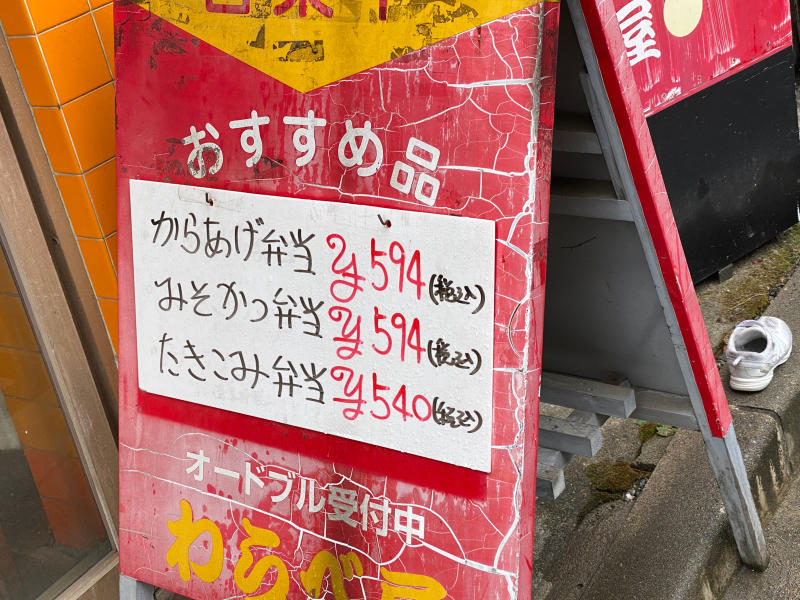 おすすめ品
からあげ弁当 ¥594(税込)
みそかつ弁当 ¥594(税込)
たきこみ弁当 ¥540(税込)
オードブル受付中
わらべ